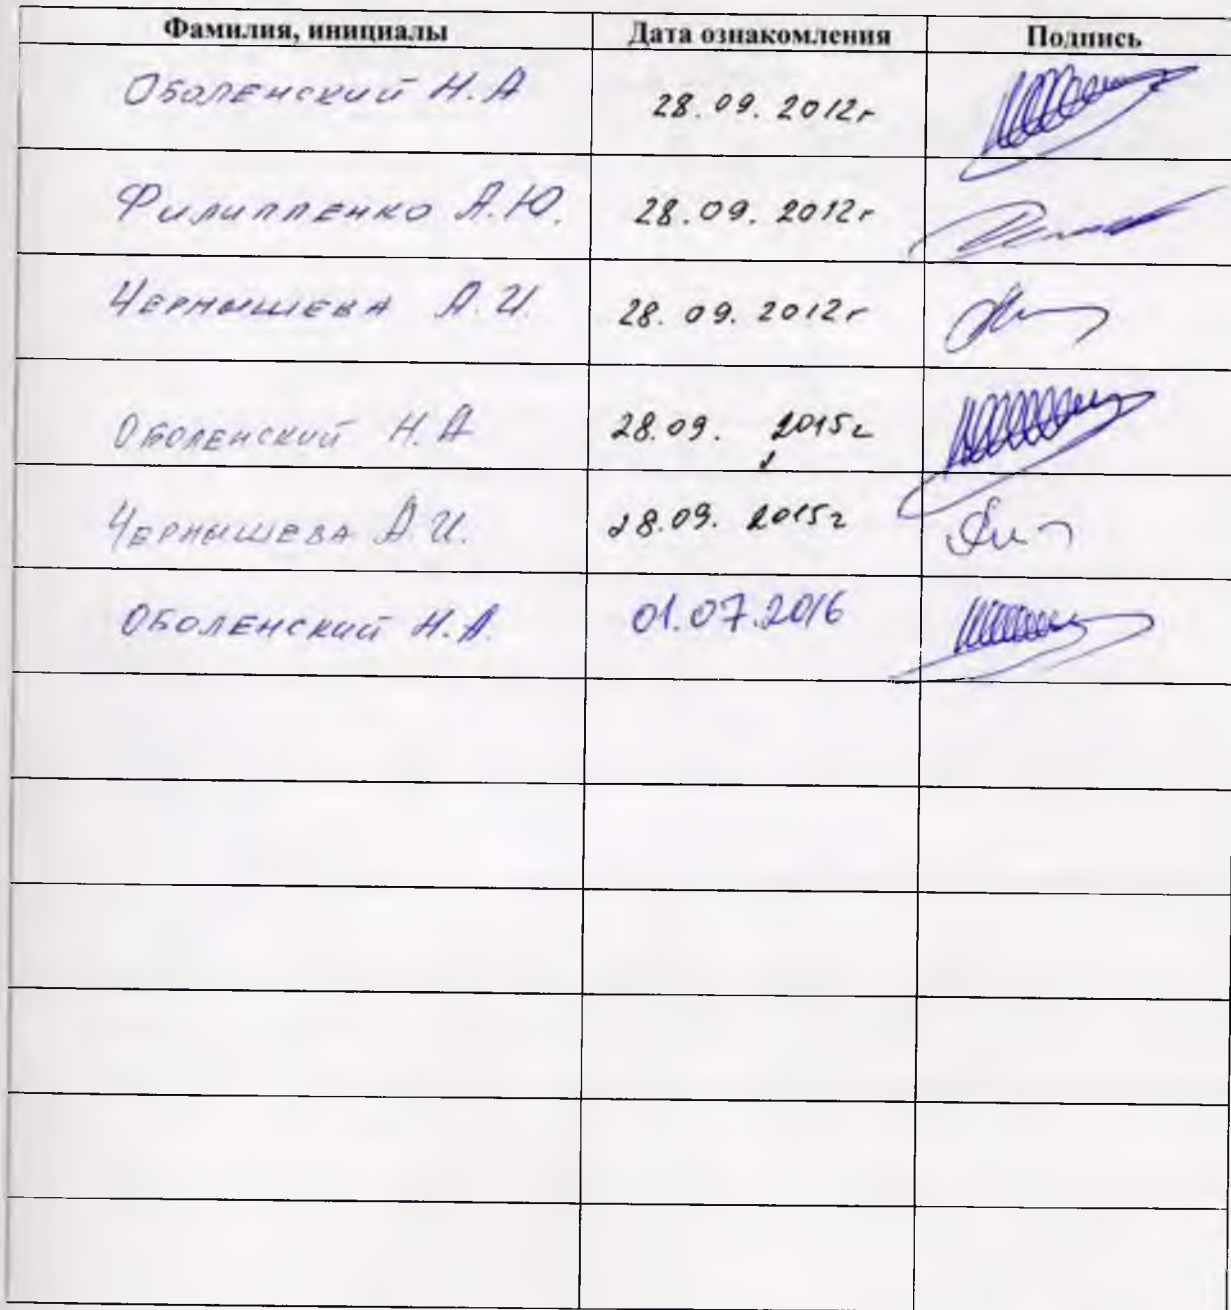 Фамилия, инициалы Дата ознакомления Подпись
Оболенский Н.А 28.09.2012г
Филиппенко А.Ю. 28.09.2012г
Чернышева А.И. 28.09.2012г
Оболенский Н.А 28.09. 2015г
Чернышева А.И. 28.09. 2015г
Оболенский Н.А. 01.07.2016